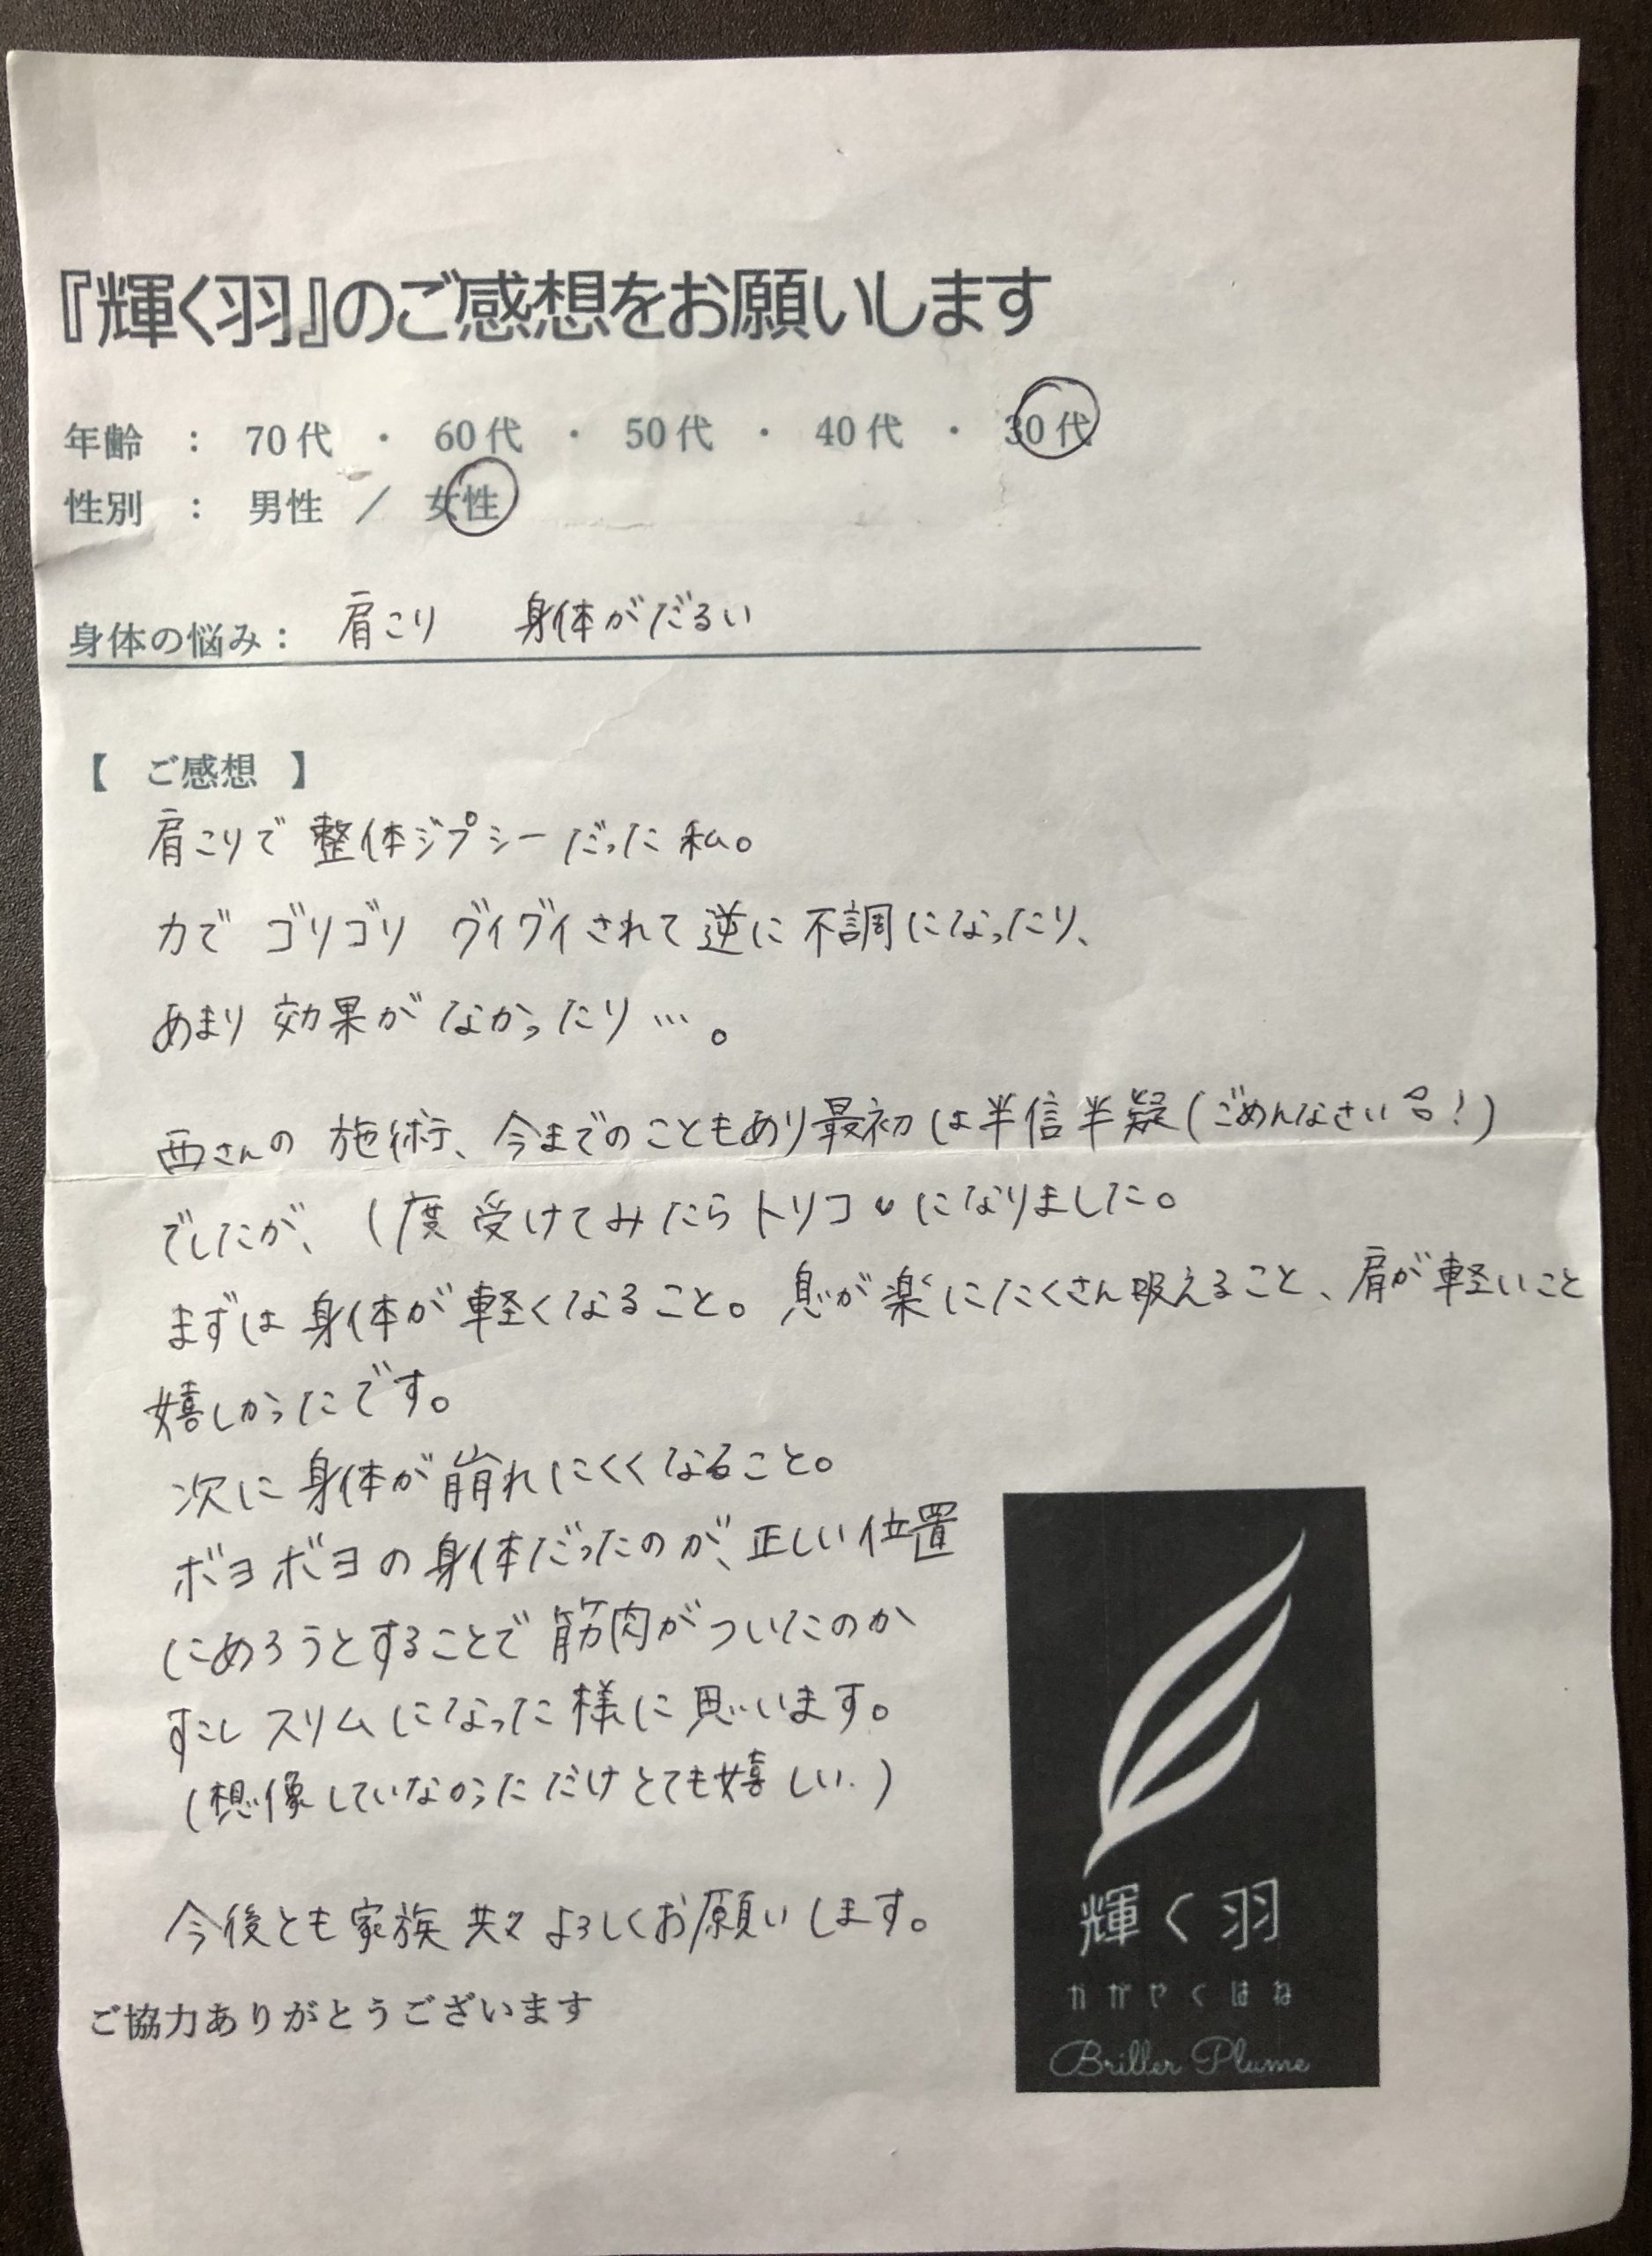 『輝く羽』のご感想をお願いします
年齢 : 70代 ・ 60代 ・ 50代 ・ 40代 ・ 30代
性別 : 男性 / 女性
身体の悩み: 肩こり 身体がだるい
【 ご感想 】
肩こりで整体ジプシーだった私。
力で ゴリゴリ グイグイされて逆に不調になったり、
あまり効果がなかったり…。
西さんの施術、今までのこともあり最初は半信半疑(ごめんなさい!)
でしたが、1度受けてみたらトリコ♥になりました。
まずは身体が軽くなること。息が楽にたくさん吸えること、肩が軽いこと
嬉しかったです。
次に身体が崩れにくくなること。
ボヨボヨの身体だったのが、正しい位置
にめろうとすることで筋肉がついたのか
すこしスリムになった様に思います。
(想像していなかっただけとても嬉しい.)
今後とも家族共々よろしくお願いします。
ご協力ありがとうございます
輝く羽
かがやくはね
Briller Plume